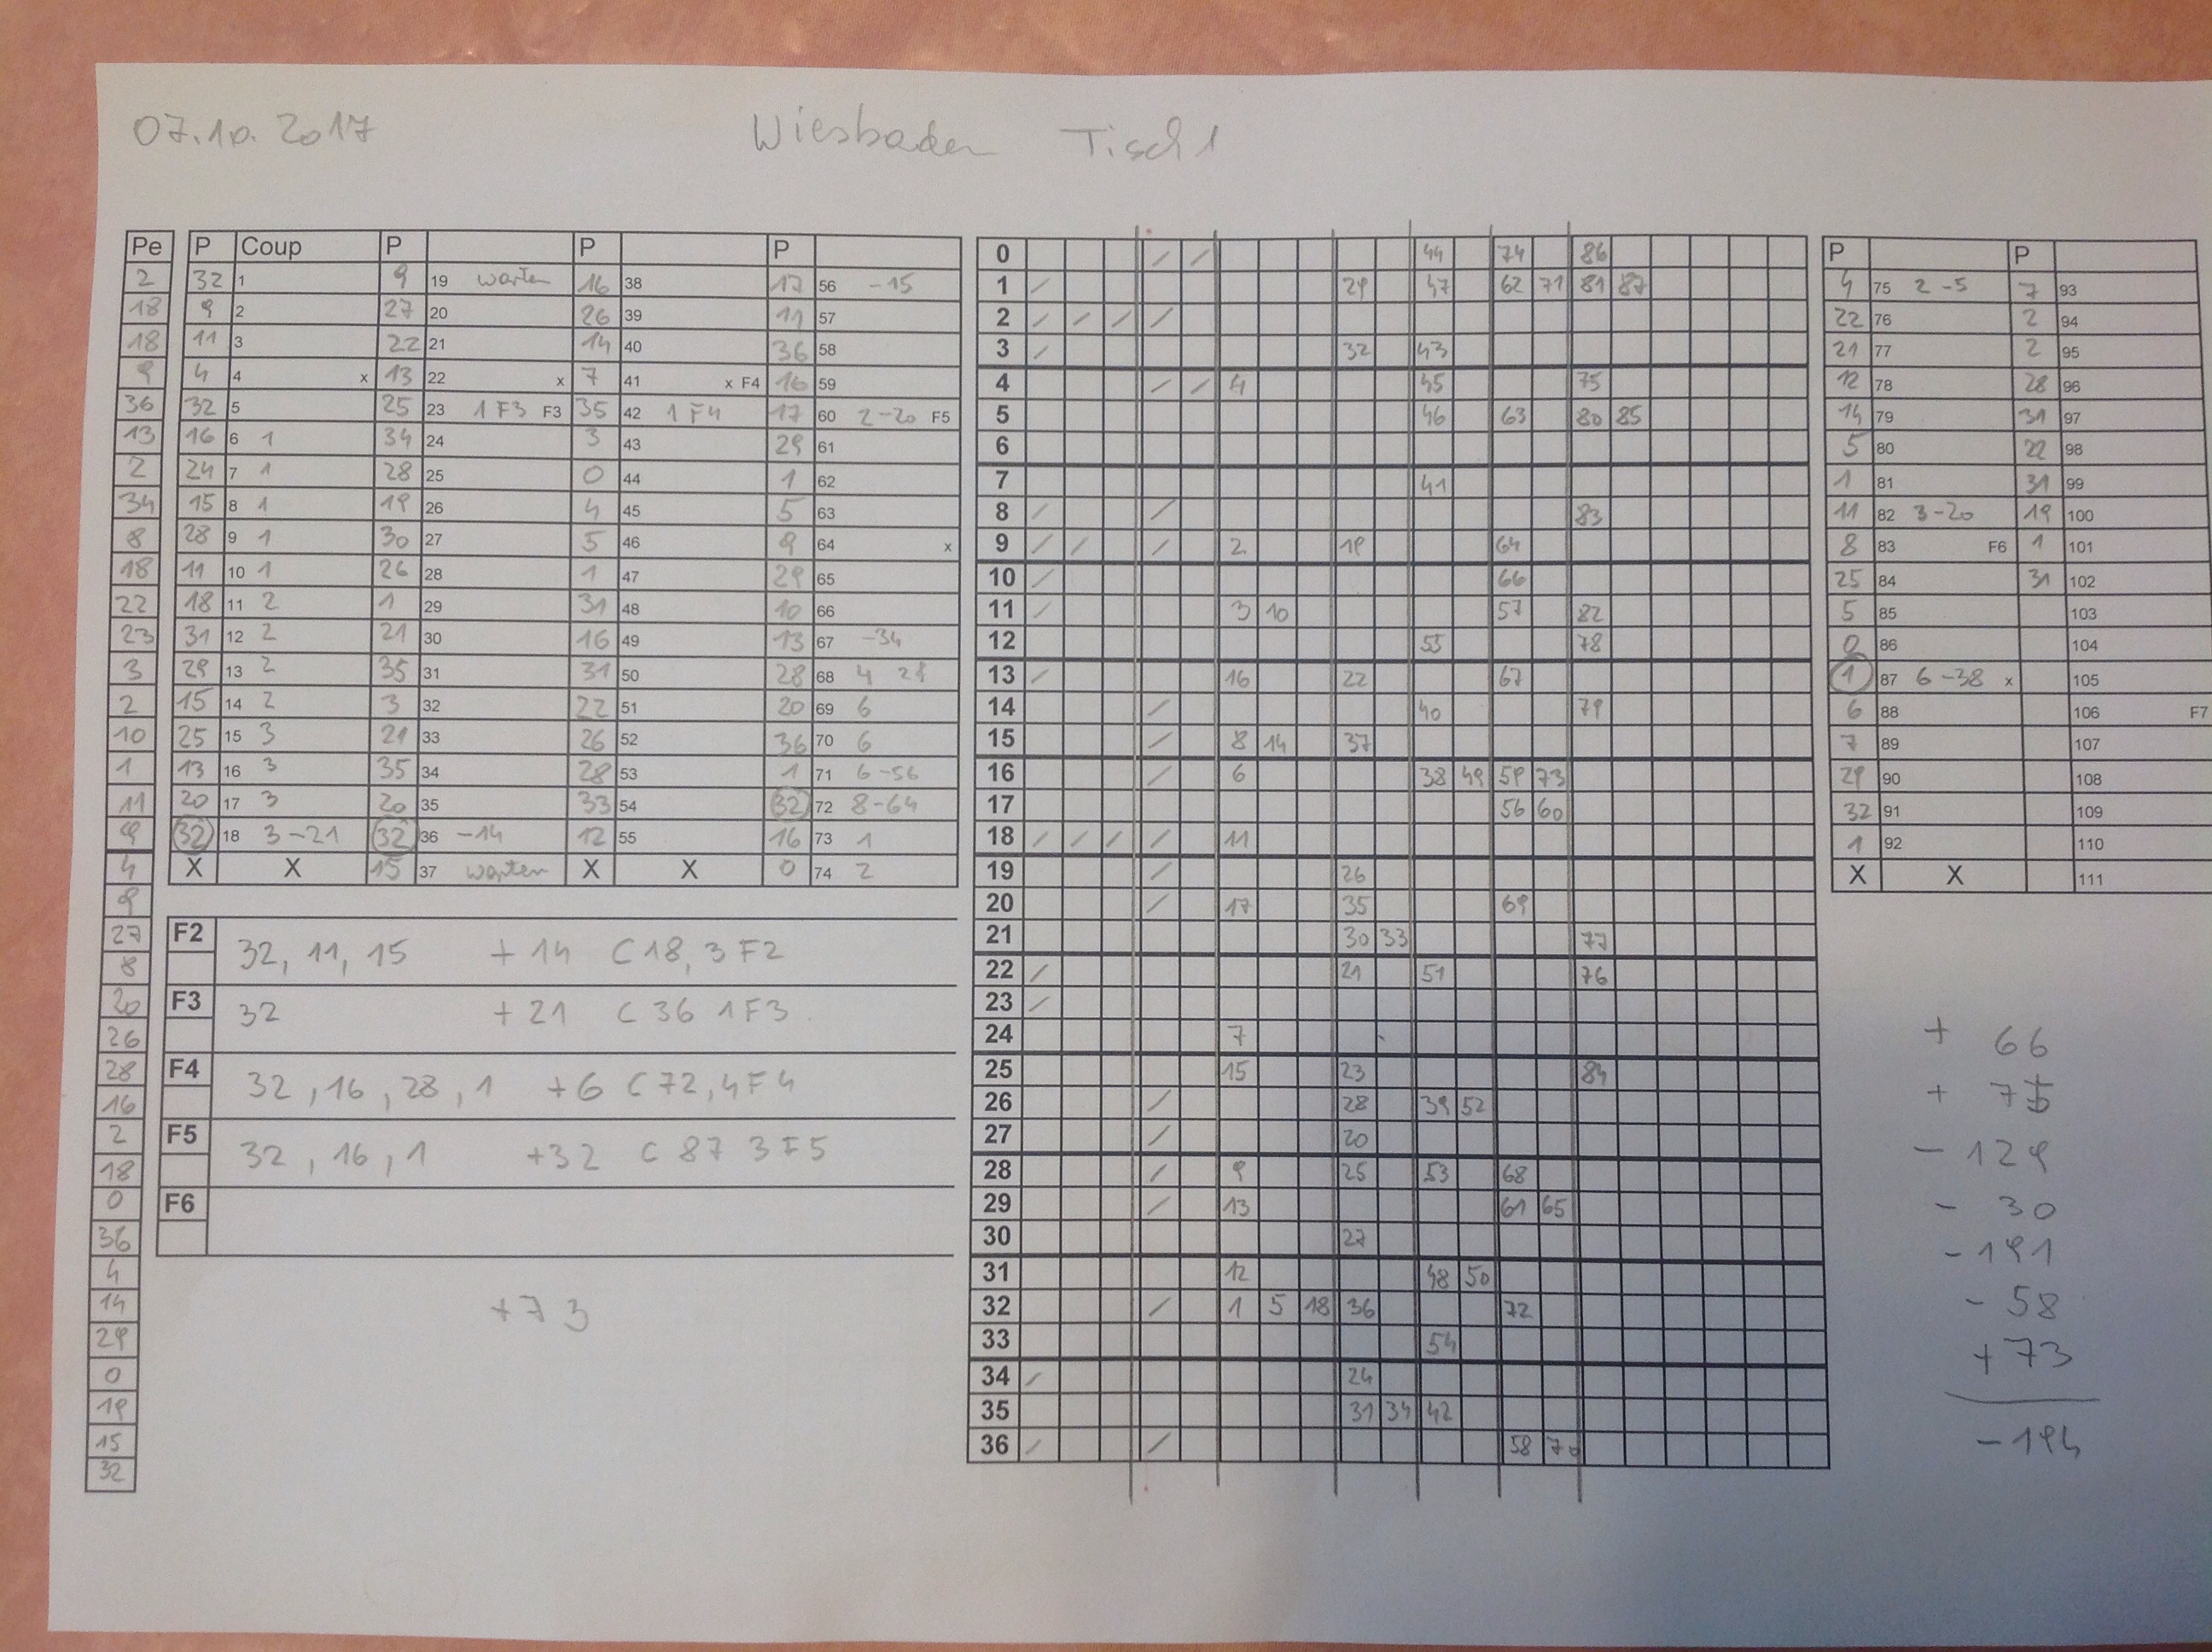 07.10.2017 Wiesbaden Tisch 1
Pe P Coup P P P
2 32 1 9 19 warten 16 38 17 56 -15
18 9 2 27 20 26 39 11 57
18 11 3 22 21 14 40 36 58
9 4 4 x 13 22 x 7 41 x F4 16 59
36 32 5 25 23 1 F3 F3 35 42 1 F4 17 60 2-20 F5
13 16 6 1 34 24 3 43 29 61
2 24 7 1 28 25 0 44 1 62
34 15 8 1 19 26 4 45 5 63
8 28 9 1 30 27 5 46 9 64 x
18 11 10 1 26 28 1 47 29 65
22 18 11 2 1 29 31 48 10 66
23 31 12 2 21 30 16 49 13 67 -34
3 29 13 2 35 31 31 50 28 68 4
2 15 14 2 3 32 22 51 20 69 6
10 25 15 3 21 33 26 52 36 70 6
1 13 16 3 35 34 28 53 1 71 6-56
11 20 17 3 20 35 33 54 32 72 8-64
9 32 18 3-21 32 36 -14 12 55 16 73 1
4 X X 15 37 warten X X 0 74 2
9
27
8
20
26
28
16
2
18
0
36
4
14
29
0
19
15
32
F2 32, 11, 15 +14 C18, 3F2
F3 32 +21 C36 1F3
F4 32, 16, 28, 1 +6 C72, 4F4
F5 32, 16, 1 +32 C87 3F5
F6
+73
0 / / 44 74 86
1 / 29 47 62 71 81 87
2 / / / /
3 / 32 43
4 / / 4 45 75
5 46 63 80 85
6
7 41
8 / / 83
9 / / / 2 19 64
10 / 66
11 / 3 10 57 82
12 55 78
13 / 16 22 67
14 / 40 79
15 / 8 14 37
16 / 6 38 49 59 73
17 56 60
18 / / / / 11
19 / 26
20 / 17 35 69
21 30 33 77
22 / 21 51 76
23 /
24 7
25 15 23 84
26 / 28 39 52
27 / 20
28 / 9 25 53 68
29 / 13 61 65
30 27
31 12 48 50
32 / 1 5 18 36 72
33 54
34 / 24
35 31 34 42
36 / / 58 70
P P
4 75 2-5 7 93
22 76 2 94
21 77 2 95
12 78 28 96
14 79 31 97
5 80 22 98
1 81 31 99
11 82 3-20 19 100
8 83 F6 1 101
25 84 31 102
5 85 103
0 86 104
1 87 6-38 x 105
6 88 106 F7
7 89 107
29 90 108
32 91 109
1 92 110
X X 111
+ 66
+ 75
- 129
- 30
- 191
- 58
+ 73
- 194